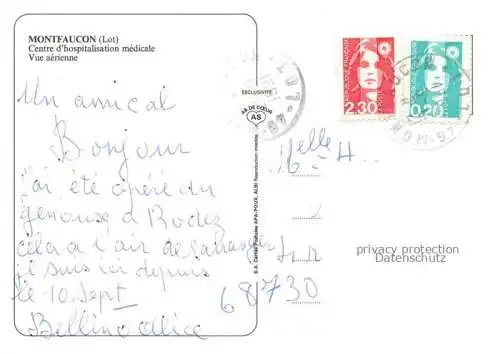 MONTFAUCON (Lot)
Centre d'hospitalisation médicale
Vue aérienne
Un amical
Bonjour
j'ai été opéré du
genouse à Rodez
cela a l'air de s'arranger
je suis ici depuis
le 10 Sept
Bellino Alice
EXCLUSIVITÉ
AS DE CŒUR
AS
S.A. Cartes Postales APA-POUX, ALBI Reproduction interdite
2,30
0,20
Melle
68730
privacy protection
Datenschutz